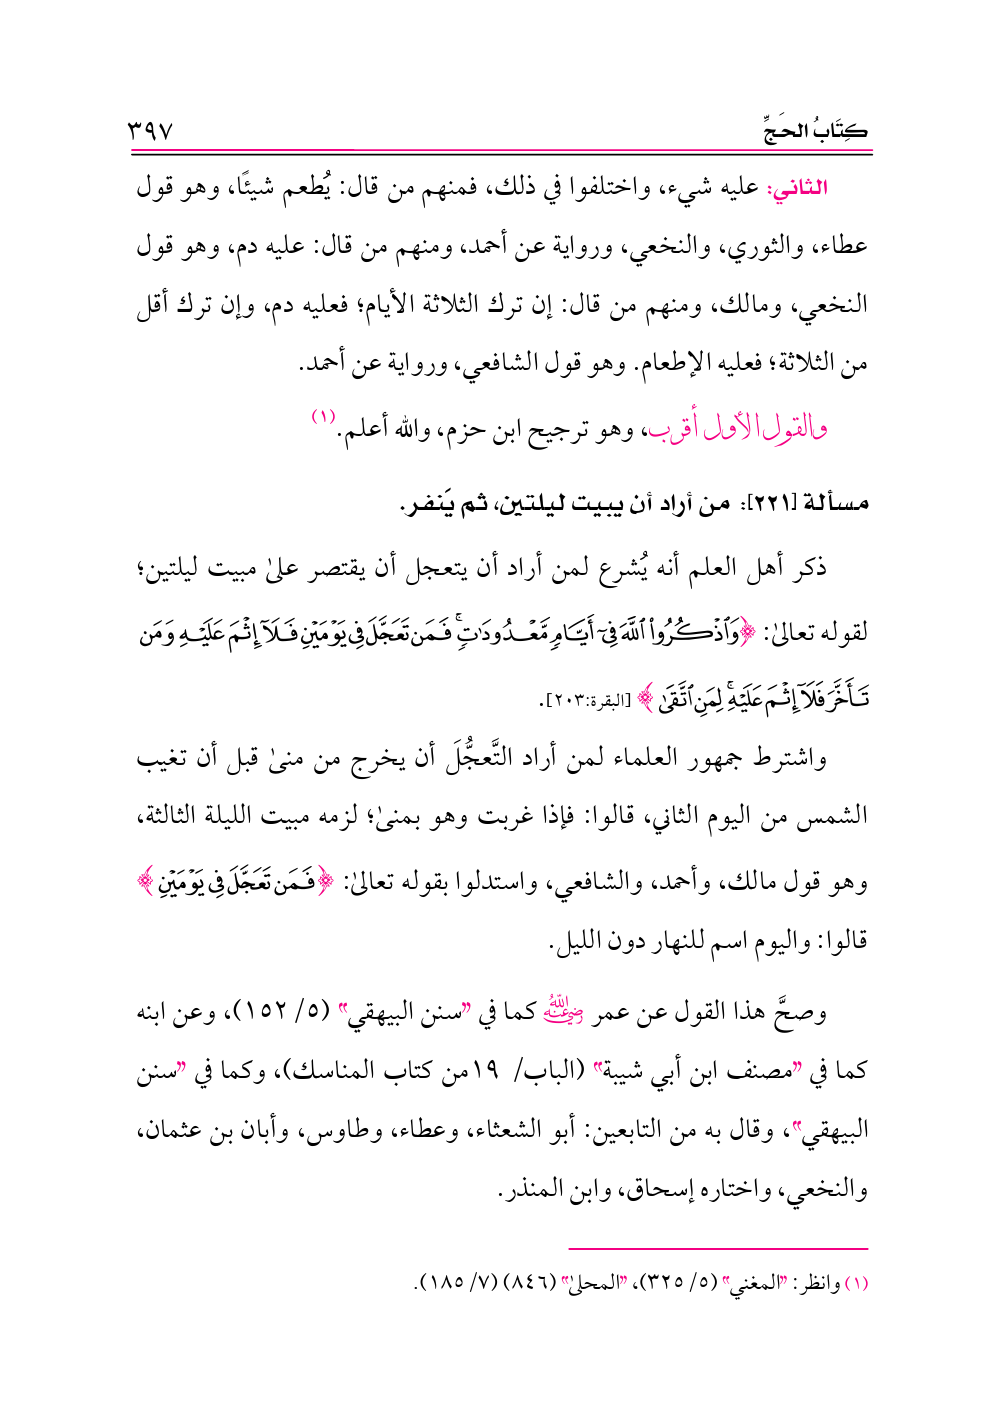 كِتَابُ الحَجِّ ٣٩٧
الثاني: عليه شيء، واختلفوا في ذلك، فمنهم من قال: يُطعم شيئًا، وهو قول
عطاء، والثوري، والنخعي، ورواية عن أحمد، ومنهم من قال: عليه دم، وهو قول
النخعي، ومالك، ومنهم من قال: إن ترك الثلاثة الأيام؛ فعليه دم، وإن ترك أقل
من الثلاثة؛ فعليه الإطعام. وهو قول الشافعي، ورواية عن أحمد.
والقول الأول أقرب، وهو ترجيح ابن حزم، والله أعلم.(١)
مسألة [٢٢١]: من أراد أن يبيت ليلتين، ثم يَنفر.
ذكر أهل العلم أنه يُشرع لمن أراد أن يتعجل أن يقتصر علىٰ مبيت ليلتين؛
لقوله تعالىٰ: ﴿وَٱذْكُرُوا۟ ٱللَّهَ فِىٓ أَيَّامٍ مَّعْدُودَٰتٍ ۚ فَمَن تَعَجَّلَ فِى يَوْمَيْنِ فَلَآ إِثْمَ عَلَيْهِ وَمَن
تَأَخَّرَ فَلَآ إِثْمَ عَلَيْهِ ۚ لِمَنِ ٱتَّقَىٰ﴾ [البقرة:٢٠٣].
واشترط جمهور العلماء لمن أراد التَّعجُّلَ أن يخرج من منىٰ قبل أن تغيب
الشمس من اليوم الثاني، قالوا: فإذا غربت وهو بمنىٰ؛ لزمه مبيت الليلة الثالثة،
وهو قول مالك، وأحمد، والشافعي، واستدلوا بقوله تعالىٰ: ﴿فَمَن تَعَجَّلَ فِى يَوْمَيْنِ﴾
قالوا: واليوم اسم للنهار دون الليل.
وصحَّ هذا القول عن عمر رضي الله عنه كما في "سنن البيهقي" (٥/ ١٥٢)، وعن ابنه
كما في "مصنف ابن أبي شيبة" (الباب/ ١٩من كتاب المناسك)، وكما في "سنن
البيهقي"، وقال به من التابعين: أبو الشعثاء، وعطاء، وطاوس، وأبان بن عثمان،
والنخعي، واختاره إسحاق، وابن المنذر.
(١) وانظر: "المغني" (٥/ ٣٢٥)، "المحلىٰ" (٨٤٦) (٧/ ١٨٥).